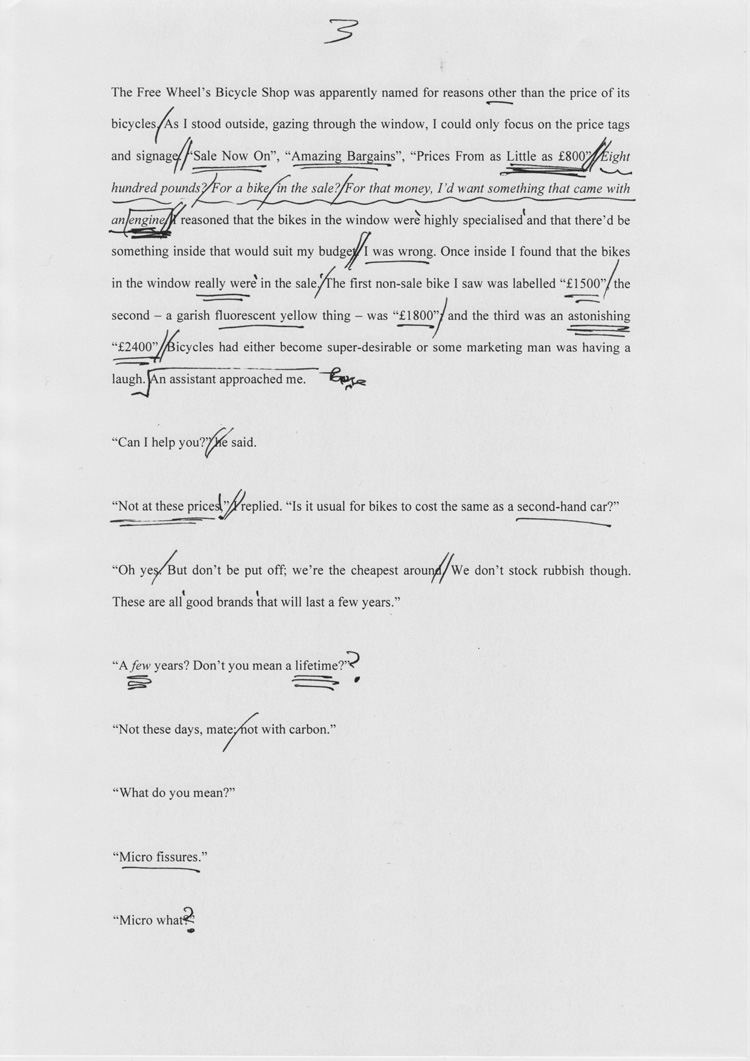 3
The Free Wheel's Bicycle Shop was apparently named for reasons other than the price of its
bicycles. As I stood outside, gazing through the window, I could only focus on the price tags
and signage: “Sale Now On”, “Amazing Bargains”, “Prices From as Little as £800”. Eight
hundred pounds? For a bike, in the sale? For that money, I'd want something that came with
an engine. I reasoned that the bikes in the window were highly specialised and that there'd be
something inside that would suit my budget. I was wrong. Once inside I found that the bikes
in the window really were in the sale. The first non-sale bike I saw was labelled “£1500”, the
second – a garish fluorescent yellow thing – was “£1800”, and the third was an astonishing
“£2400”. Bicycles had either become super-desirable or some marketing man was having a
laugh. An assistant approached me.
“Can I help you?” he said.
“Not at these prices!” I replied. “Is it usual for bikes to cost the same as a second-hand car?”
“Oh yes. But don't be put off; we're the cheapest around. We don't stock rubbish though.
These are all good brands that will last a few years.”
“A few years? Don't you mean a lifetime?” ?
“Not these days, mate; not with carbon.”
“What do you mean?”
“Micro fissures.”
“Micro what?”